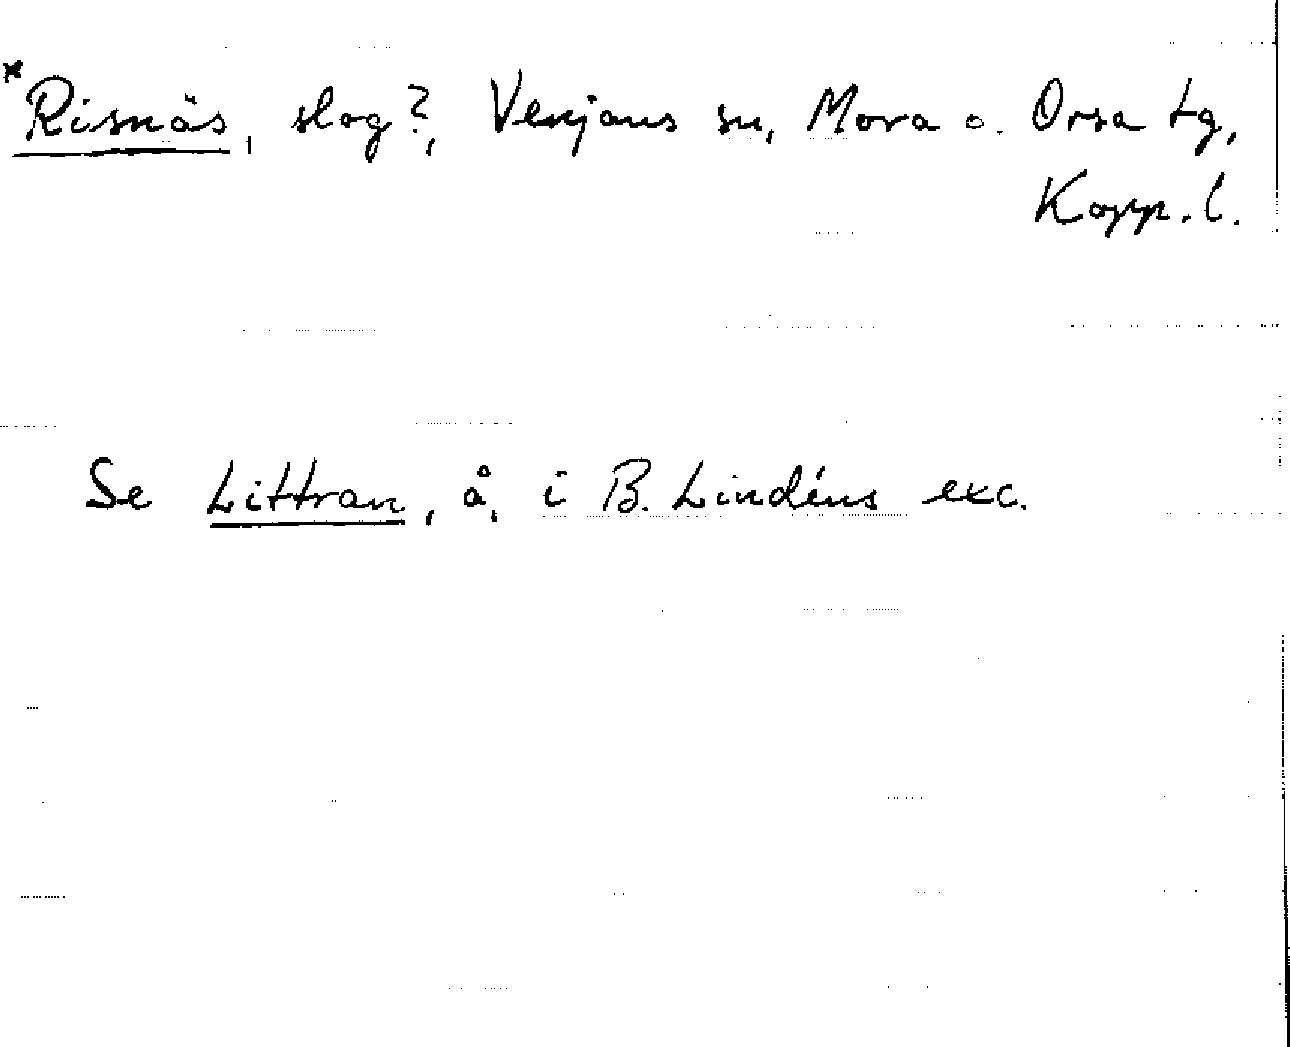 *Risnäs, slog?, Venjans sn, Mora o. Orsa tg,
Kopp. l.
Se Littran, å, i B. Lindéns exc.